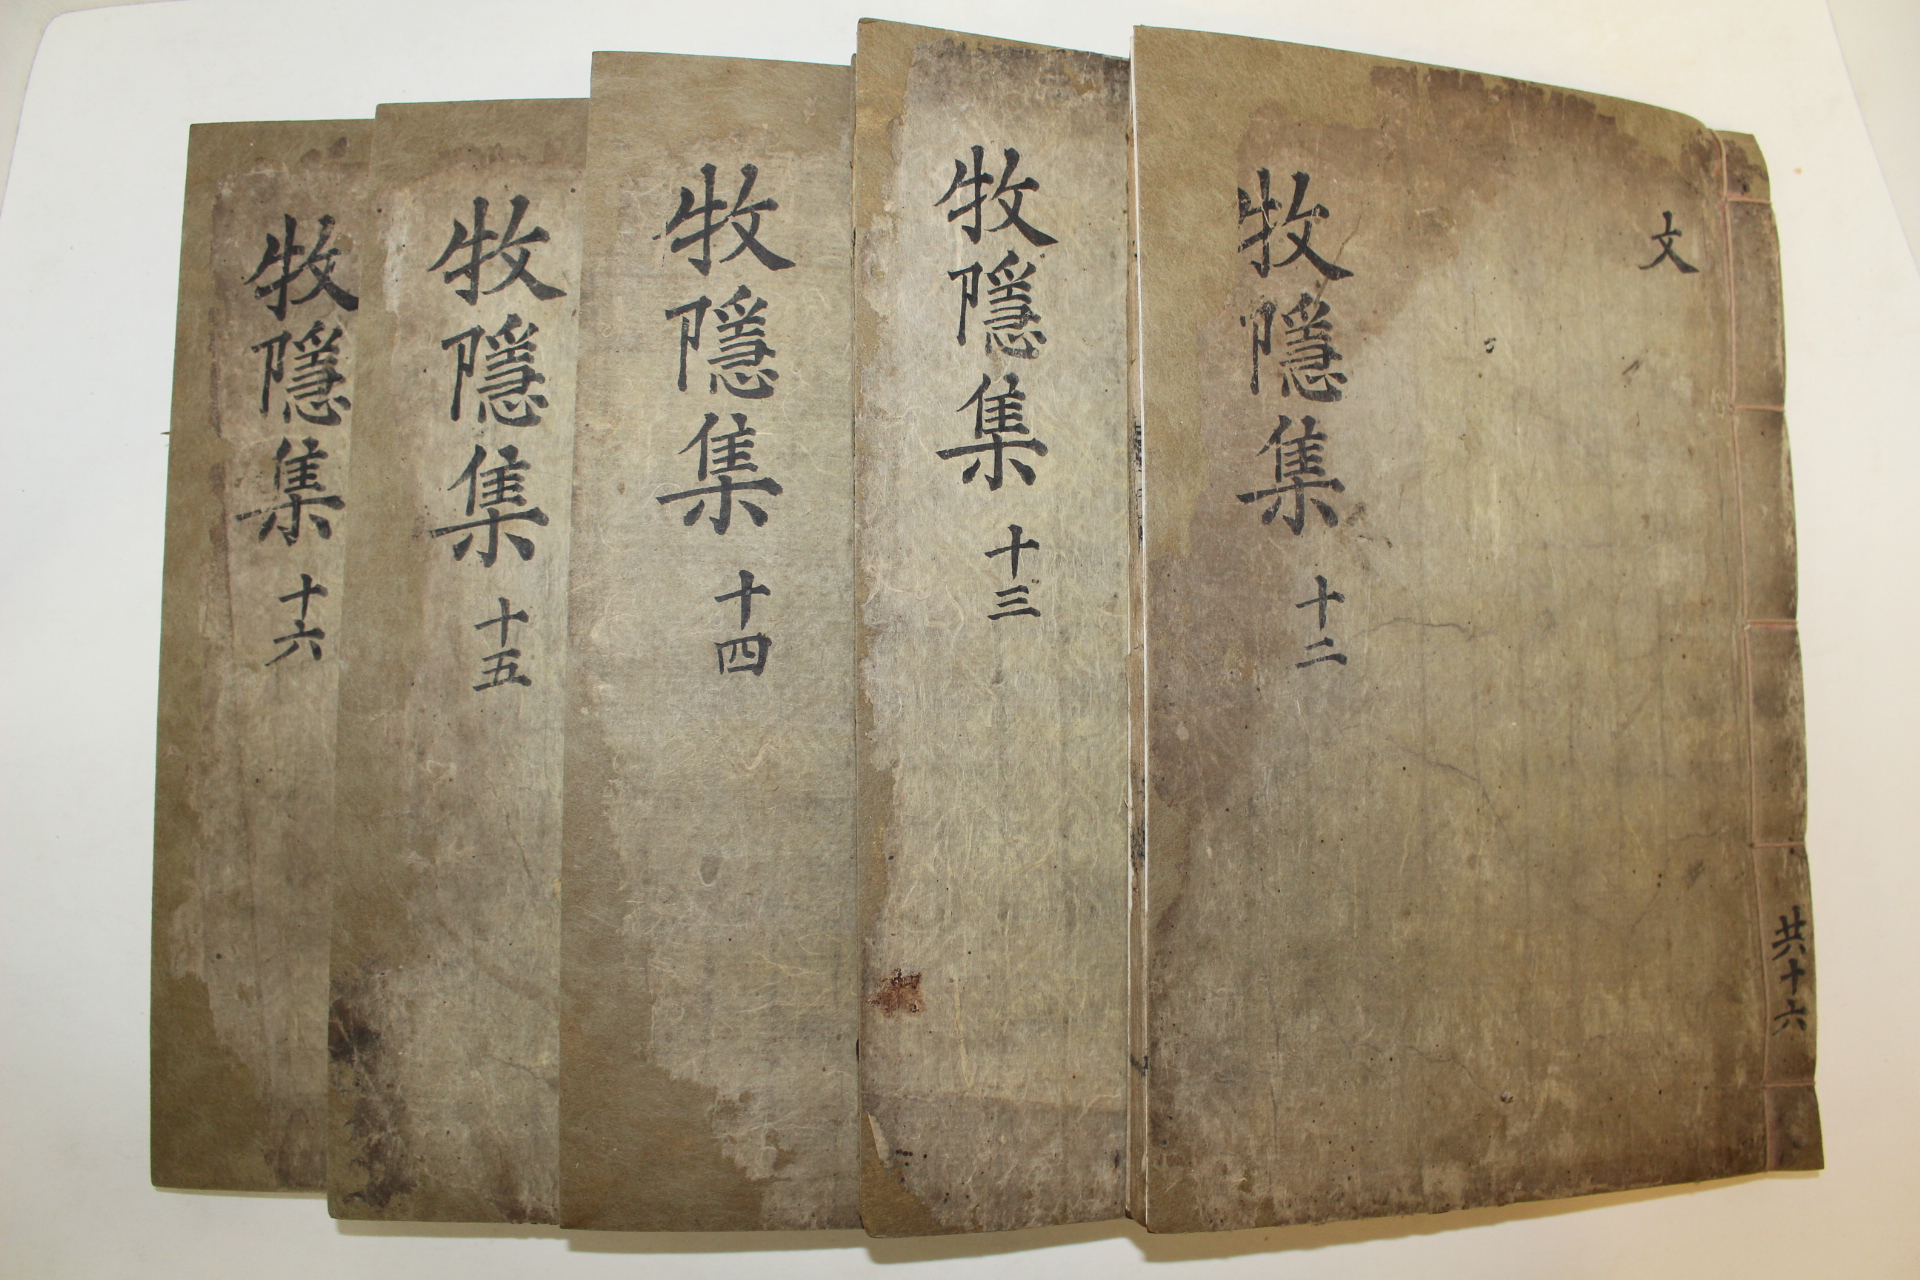 文
共十六
牧隱集 十二
牧隱集 十三
牧隱集 十四
牧隱集 十五
牧隱集 十六